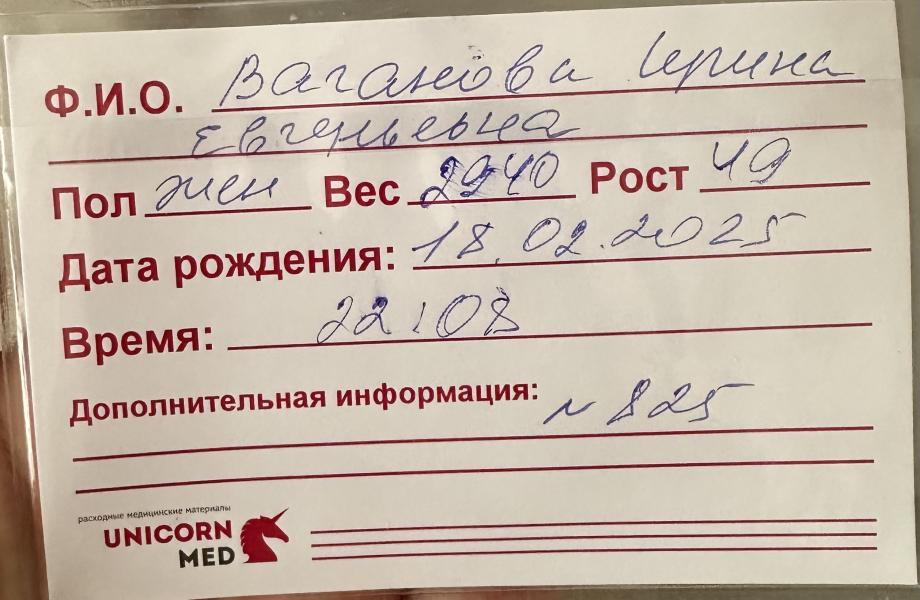 Ф.И.О. Ваганова Ирина
Евгеньевна
Пол жен Вес 2940 Рост 49
Дата рождения: 18.02.2025
Время: 22:08
Дополнительная информация: N 825
расходные медицинские материалы
UNICORN
MED